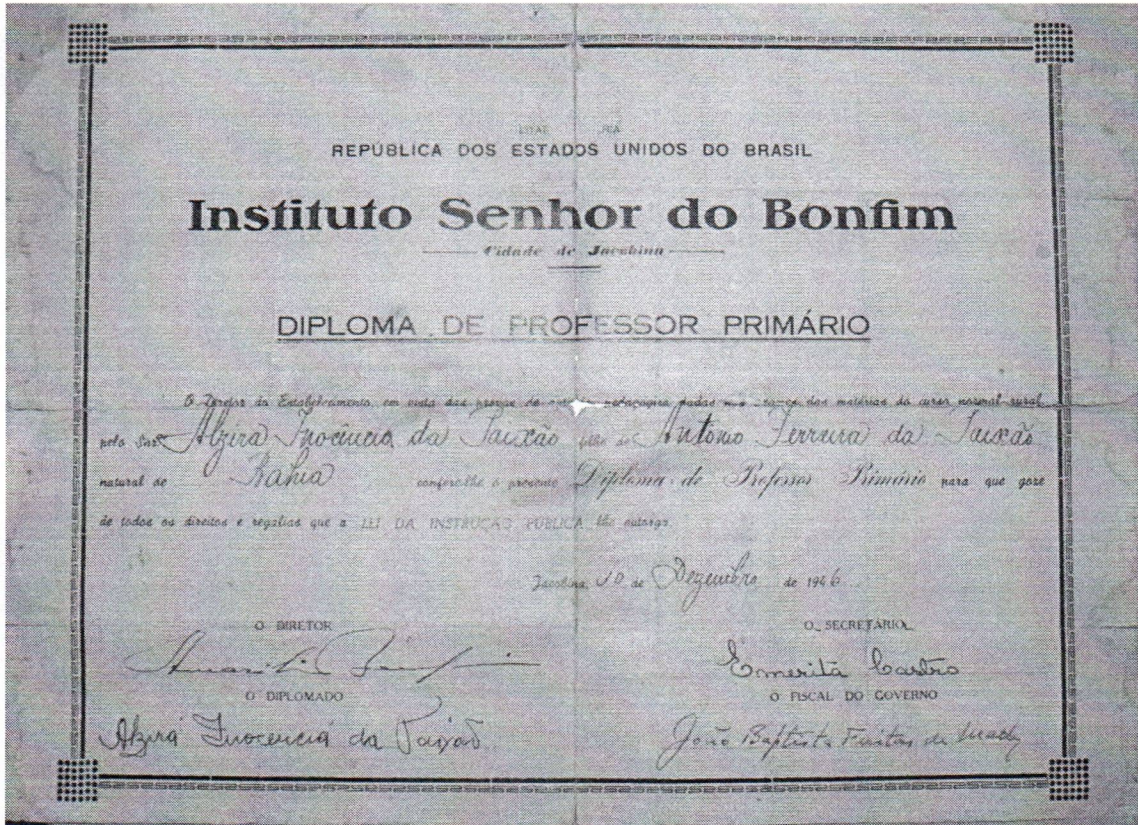 REPÚBLICA DOS ESTADOS UNIDOS DO BRASIL
Instituto Senhor do Bonfim
Cidade de Jacobina
DIPLOMA DE PROFESSOR PRIMÁRIO
O Diretor do Estabelecimento, em vista das provas de pedagogica dadas das matérias do curso normal rural
pelo Snr. Alzira Inocência da Paixão filho de Antonio Ferreira da Paixão
natural de Bahia confere-lhe o presente Diploma de Professor Primário para que goze
de todos os direitos e regalias que a LEI DA INSTRUÇÃO PUBLICA lhe outorga.
Jacobina, 10 de Dezembro de 1946
O DIRETOR
O SECRETÁRIO
Emerita Castro
O DIPLOMADO
O FISCAL DO GOVERNO
Alzira Inocencia da Paixão
João Baptista Freitas de